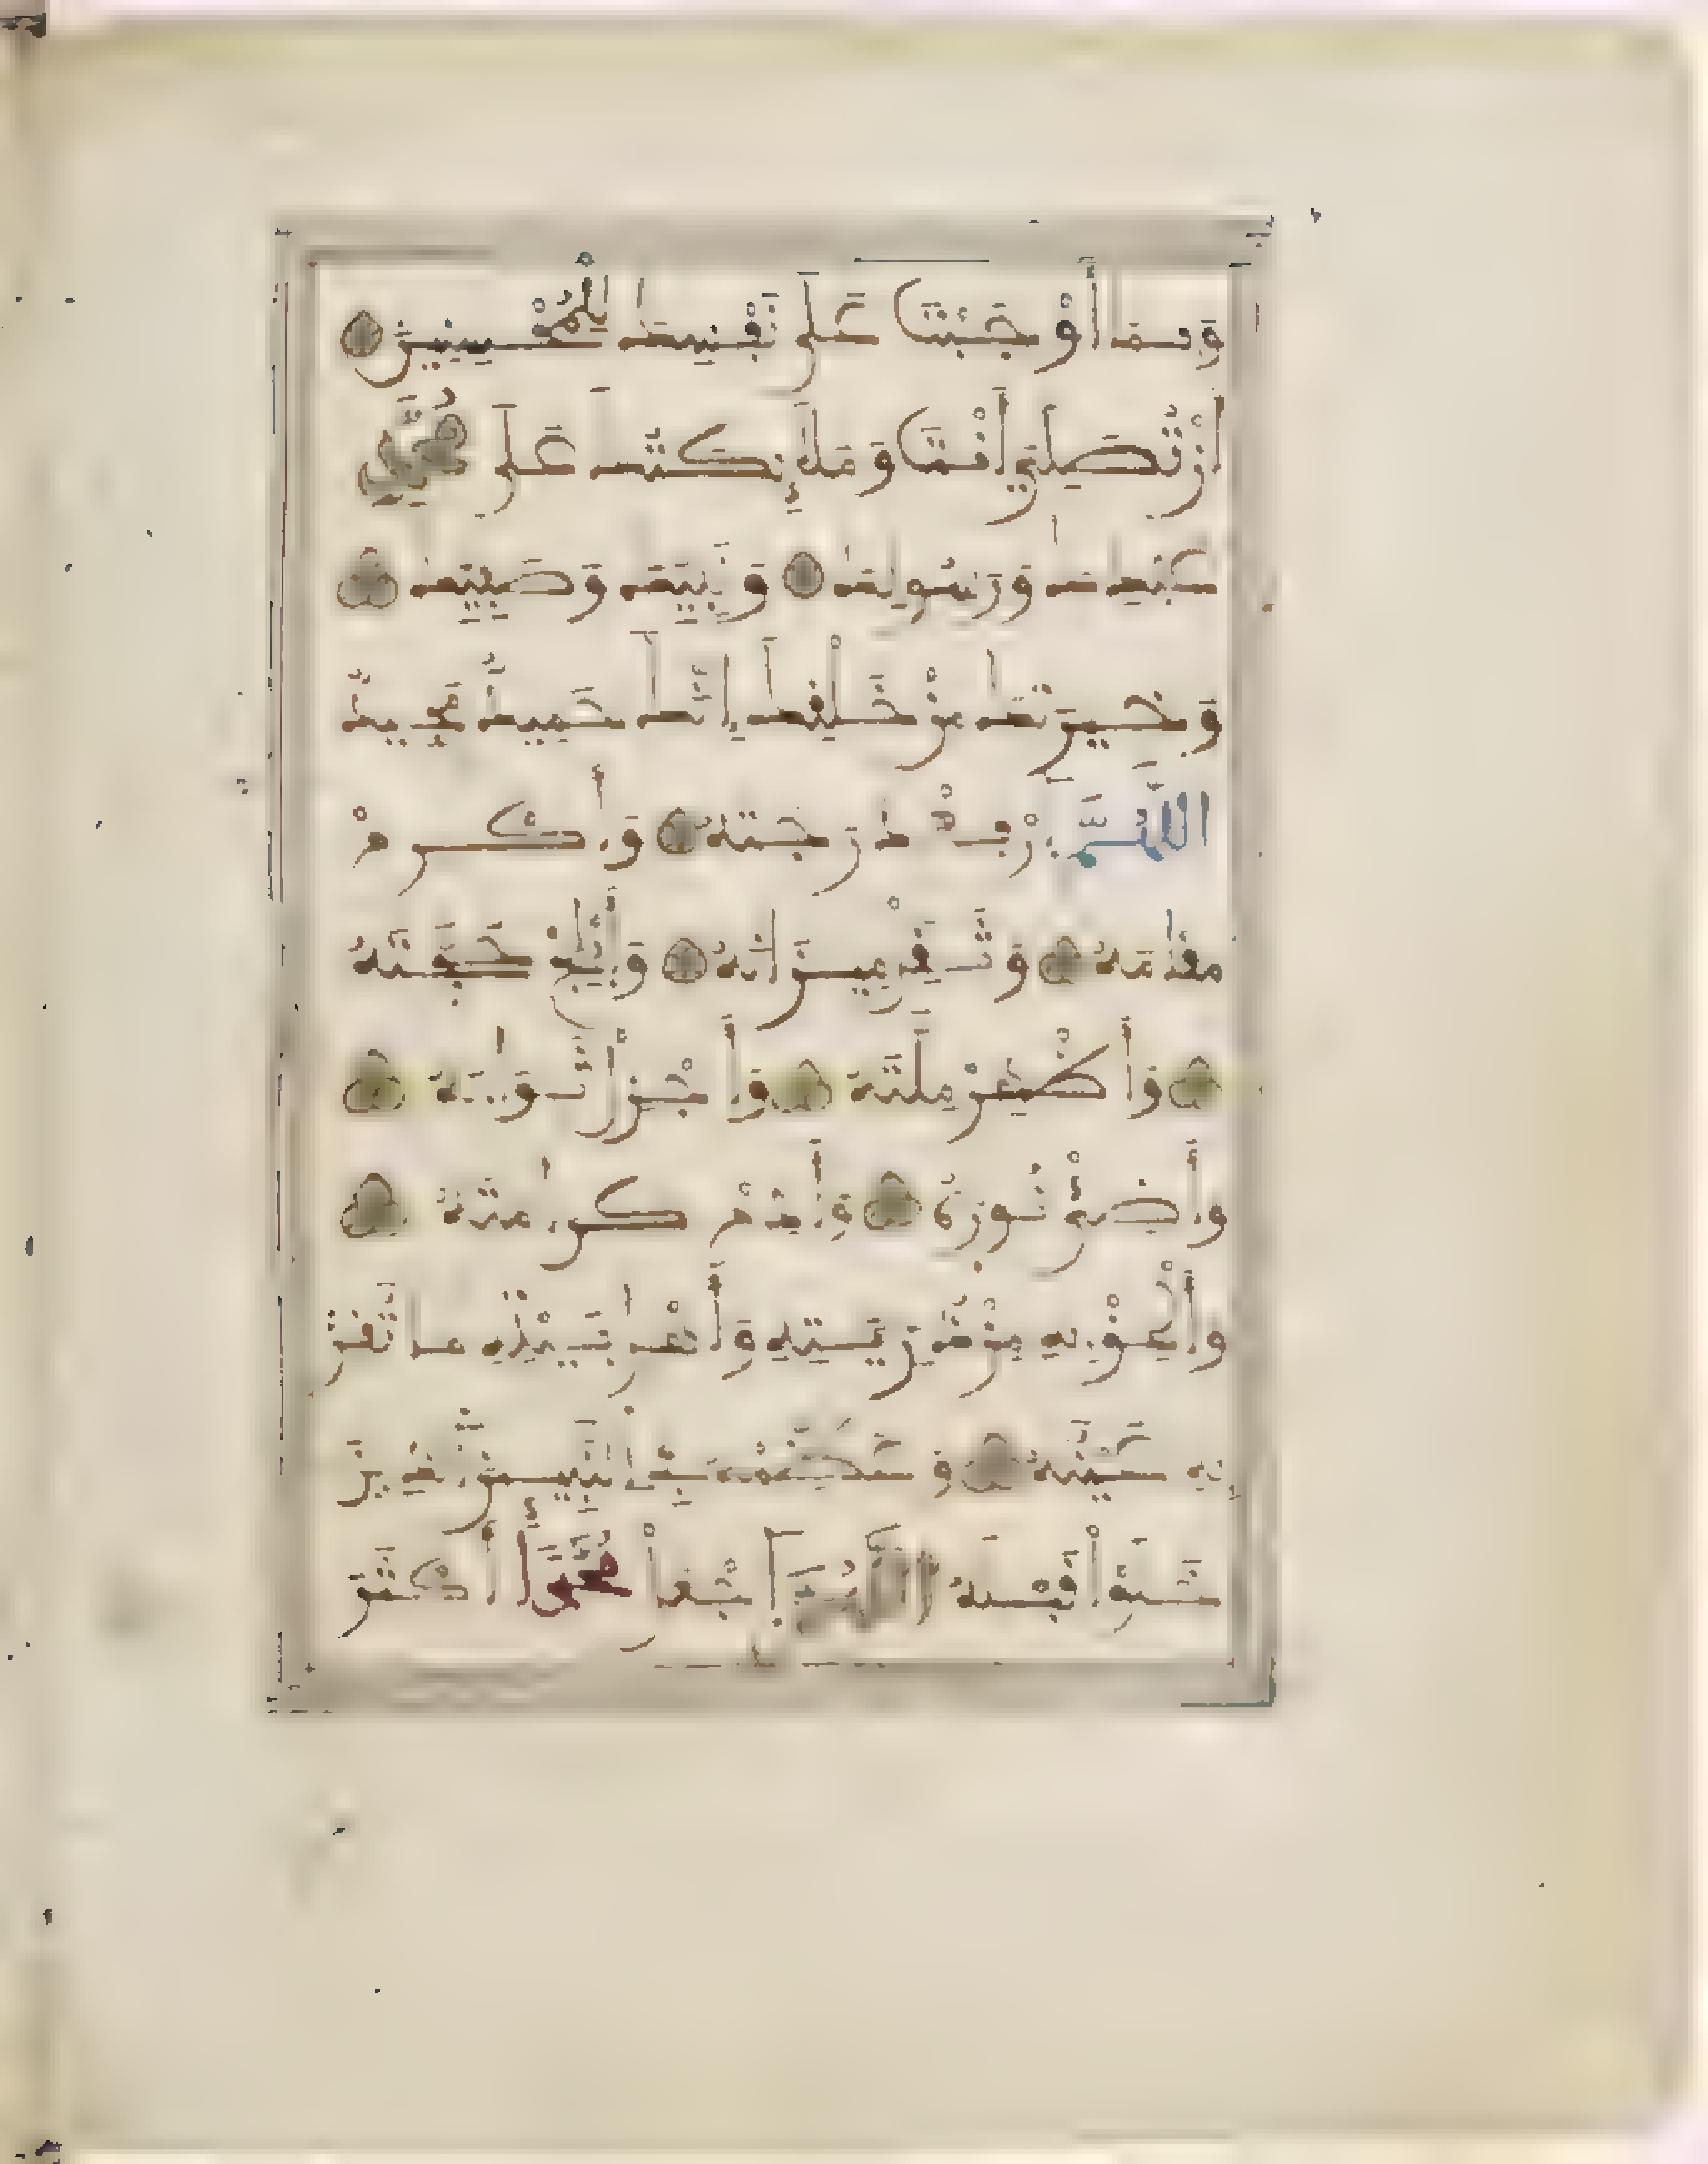 وبما أوجبت على نفسك للمحسنين
أن تصلي أنت وملائكتك على محمد
عبدك ورسولك ونبيك وصفيك
وخيرتك من خلقك إنك حميد مجيد
اللهم ارفع درجته وأكرم
مقامه وثقل ميزانه وأبلج حجته
وأظهر ملته وأجزل ثوابه
وأضئ نوره وأدم كرامته
وألحق به من ذريته وأهل بيته ما تقر
به عينه وعظمه في النبيين الذين
خلوا قبله اللهم اجعل محمدا أكثر